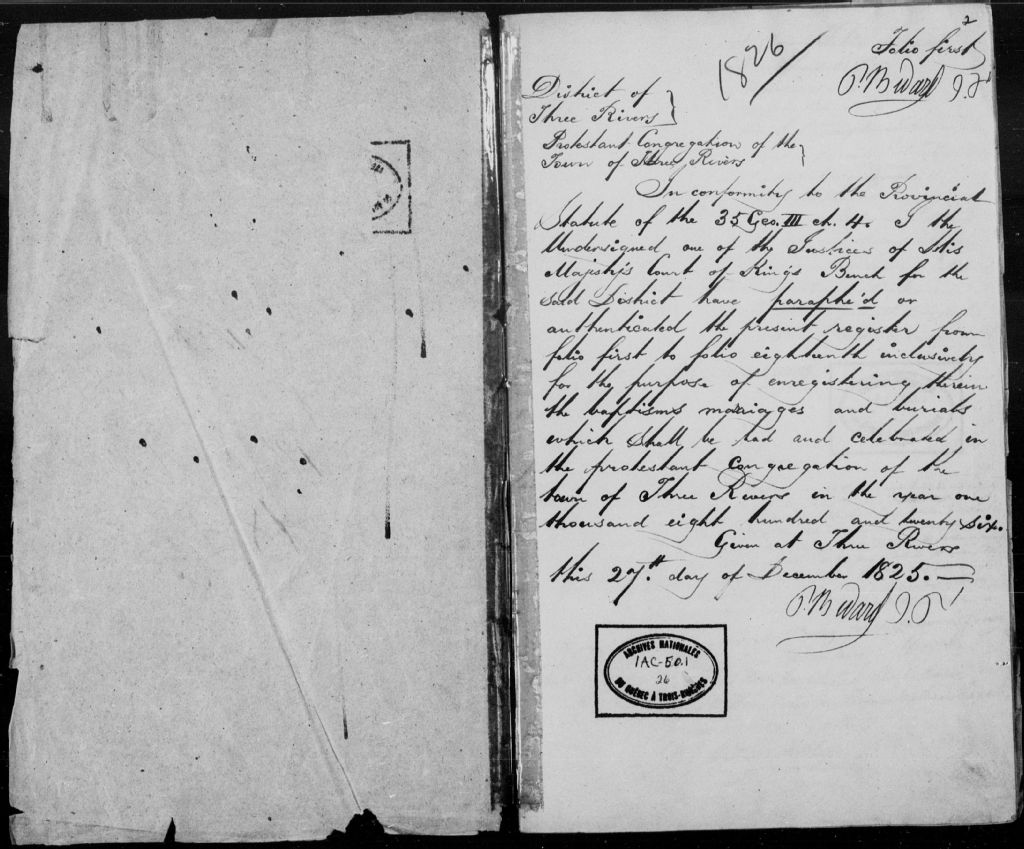 2
1826
Folio first
P. Bedard J.P.
District of
Three Rivers
Protestant Congregation of the
Town of Three Rivers
In conformity to the Provincial
Statute of the 35 Geo. III ch. 4. I the
Undersigned one of the Justices of His
Majesty's Court of King's Bench for the
Said District have paraphe'd or
authenticated the present register from
folio first to folio eighteenth inclusively
for the purpose of enregistering therein
the baptisms marriages and burials
which shall be had and celebrated in
the protestant Congregation of the
town of Three Rivers in the year one
thousand eight hundred and twenty six.
Given at Three Rivers
this 27th. day of December 1825.
P. Bedard J.P.
ARCHIVES NATIONALES
1AC-5.0.1
26
DU QUÉBEC À TROIS-RIVIÈRES